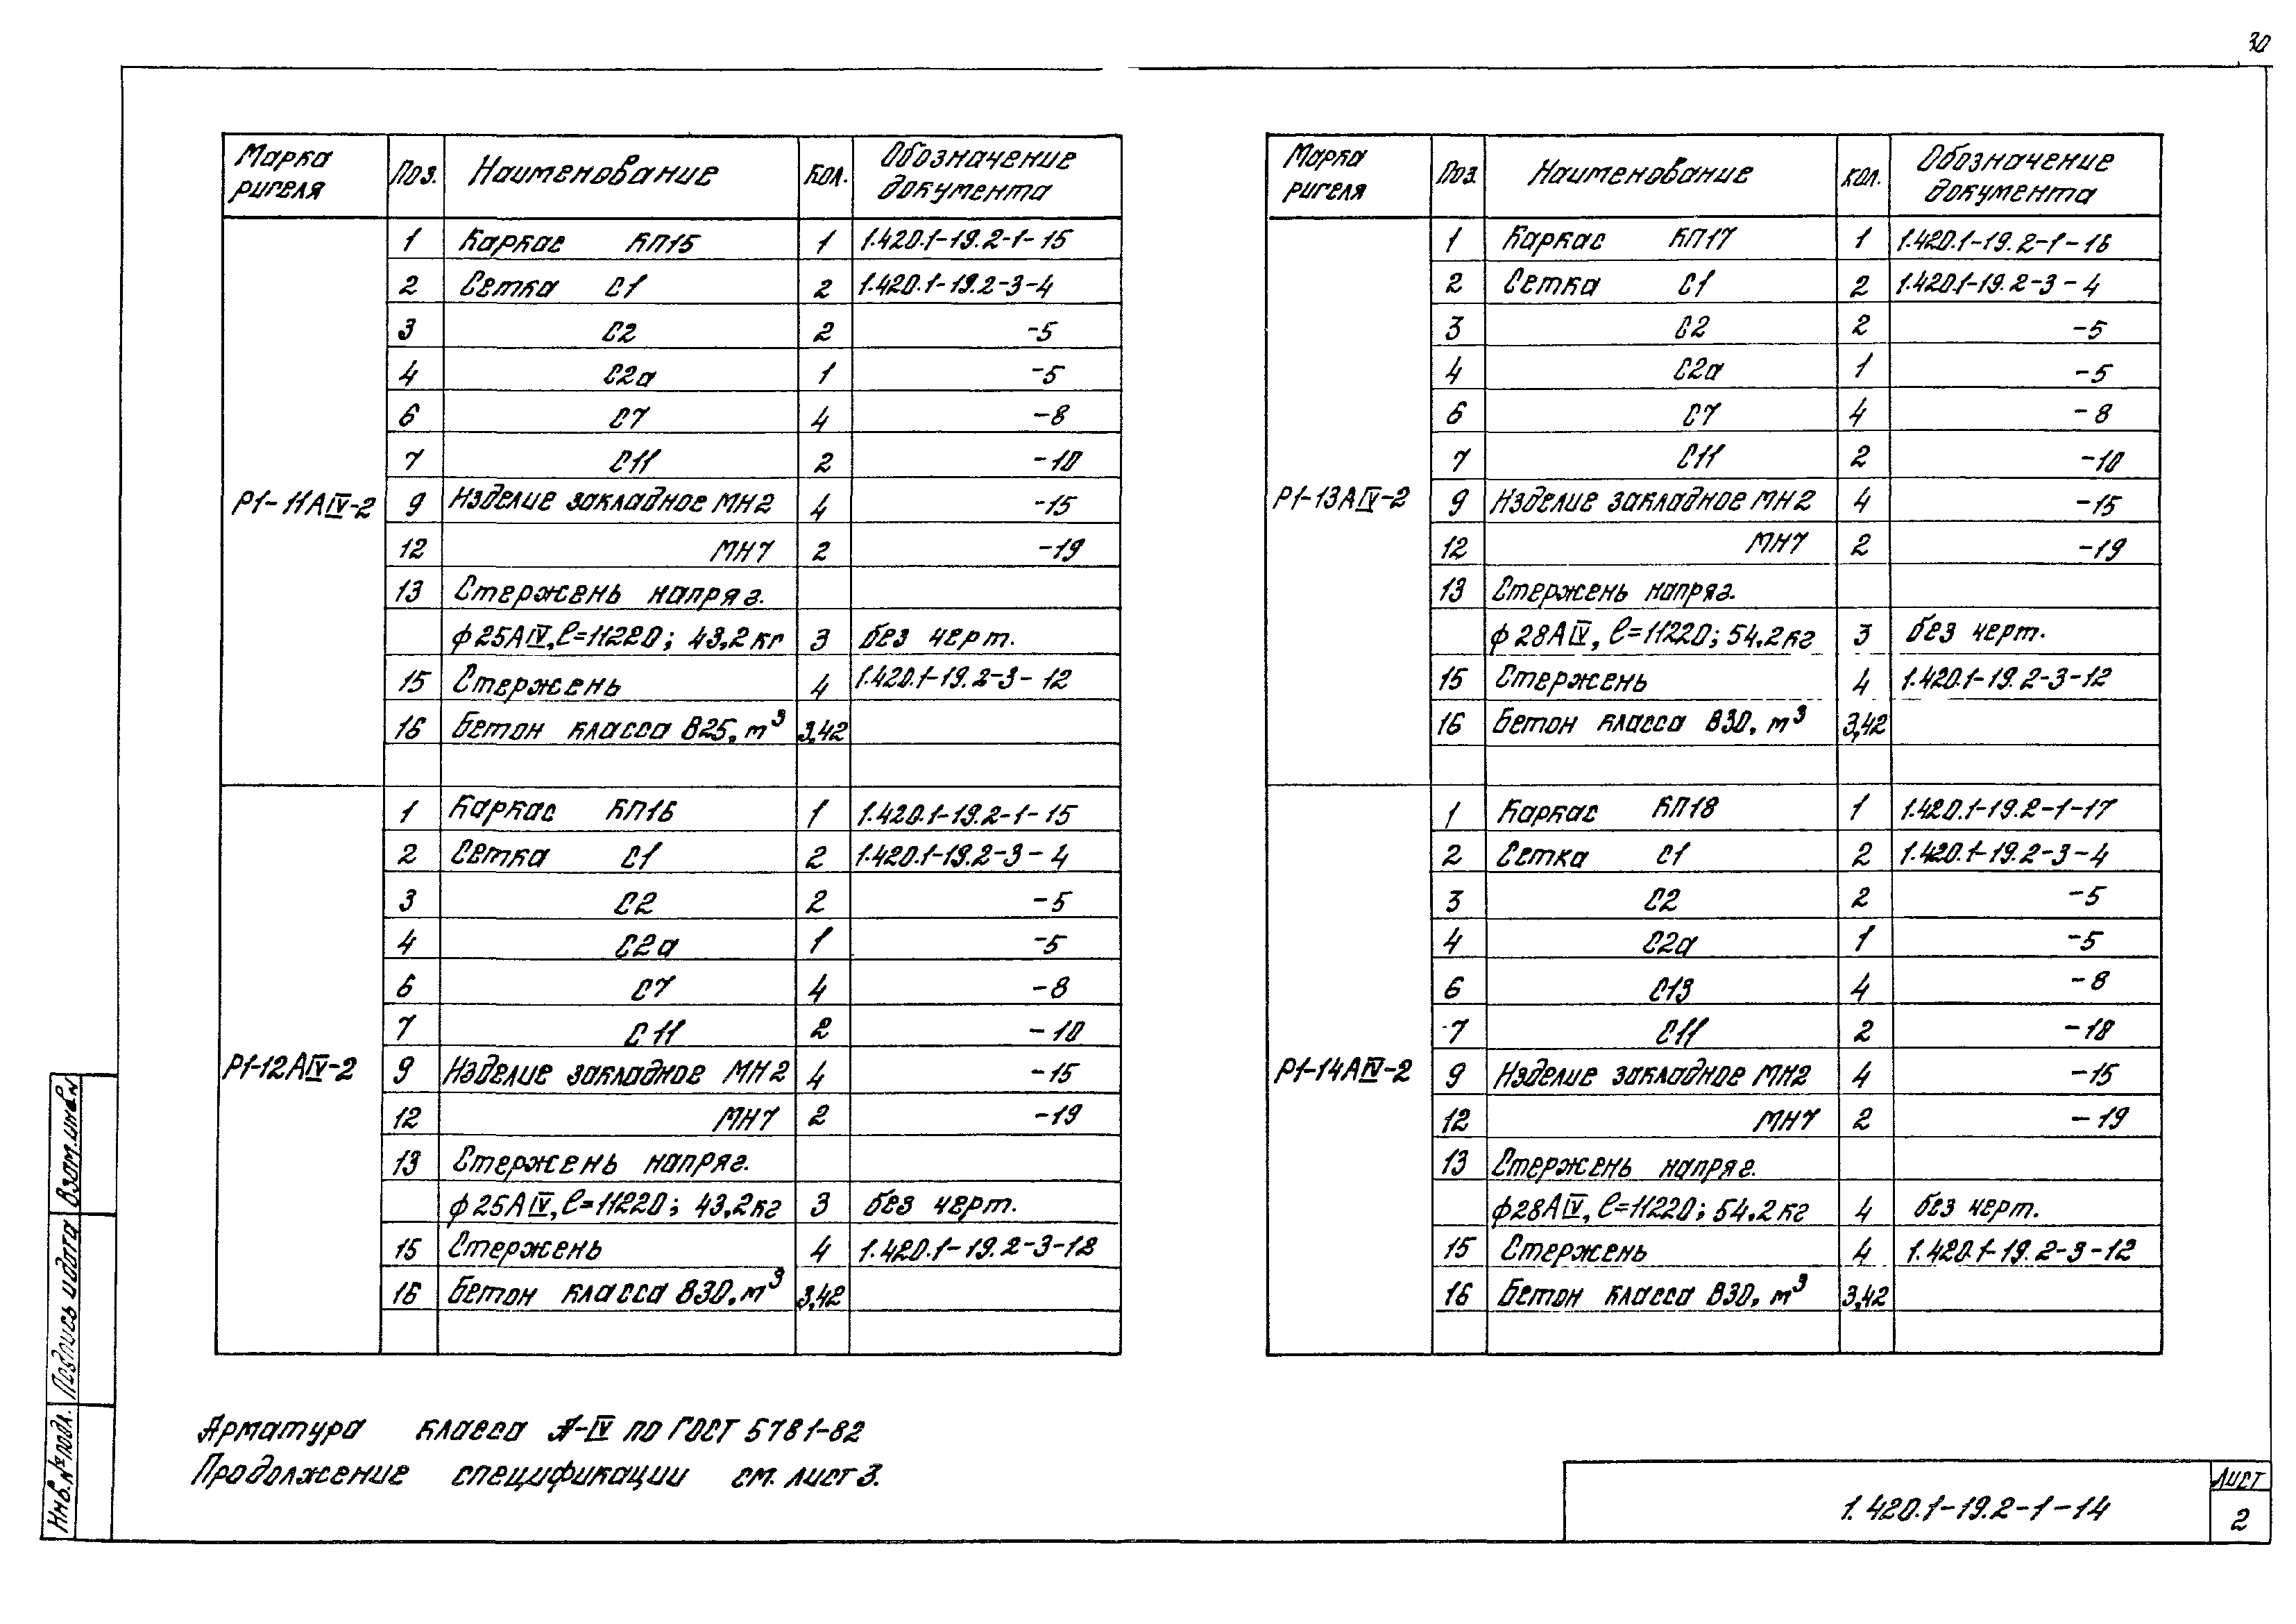 30
Марка ригеля Поз. Наименование Кол. Обозначение документа
Р1-11АIV-2
1 Каркас КП15 1 1.420.1-19.2-1-15
2 Сетка С1 2 1.420.1-19.2-3-4
3 С2 2 -5
4 С2а 1 -5
6 С7 4 -8
7 С11 2 -10
9 Изделие закладное МН2 4 -15
12 МН7 2 -19
13 Стержень напряг.
ф25АIV, ℓ=11220; 43,2кг 3 без черт.
15 Стержень 4 1.420.1-19.2-3-12
16 Бетон класса В25, м³ 3,42
Р1-12АIV-2
1 Каркас КП16 1 1.420.1-19.2-1-15
2 Сетка С1 2 1.420.1-19.2-3-4
3 С2 2 -5
4 С2а 1 -5
6 С7 4 -8
7 С11 2 -10
9 Изделие закладное МН2 4 -15
12 МН7 2 -19
13 Стержень напряг.
ф25АIV, ℓ=11220; 43,2кг 3 без черт.
15 Стержень 4 1.420.1-19.2-3-12
16 Бетон класса В30, м³ 3,42
Марка ригеля Поз. Наименование Кол. Обозначение документа
Р1-13АIV-2
1 Каркас КП17 1 1.420.1-19.2-1-16
2 Сетка С1 2 1.420.1-19.2-3-4
3 С2 2 -5
4 С2а 1 -5
6 С7 4 -8
7 С11 2 -10
9 Изделие закладное МН2 4 -15
12 МН7 2 -19
13 Стержень напряг.
ф28АIV, ℓ=11220; 54,2кг 3 без черт.
15 Стержень 4 1.420.1-19.2-3-12
16 Бетон класса В30, м³ 3,42
Р1-14АIV-2
1 Каркас КП18 1 1.420.1-19.2-1-17
2 Сетка С1 2 1.420.1-19.2-3-4
3 С2 2 -5
4 С2а 1 -5
6 С13 4 -8
7 С11 2 -18
9 Изделие закладное МН2 4 -15
12 МН7 2 -19
13 Стержень напряг.
ф28АIV, ℓ=11220; 54,2кг 4 без черт.
15 Стержень 4 1.420.1-19.2-3-12
16 Бетон класса В30, м³ 3,42
Арматура класса А-IV по ГОСТ 5781-82
Продолжение спецификации см. лист 3.
1.420.1-19.2-1-14
Лист
2
Взам.инв.№
Подпись и дата
Инв.№ подл.